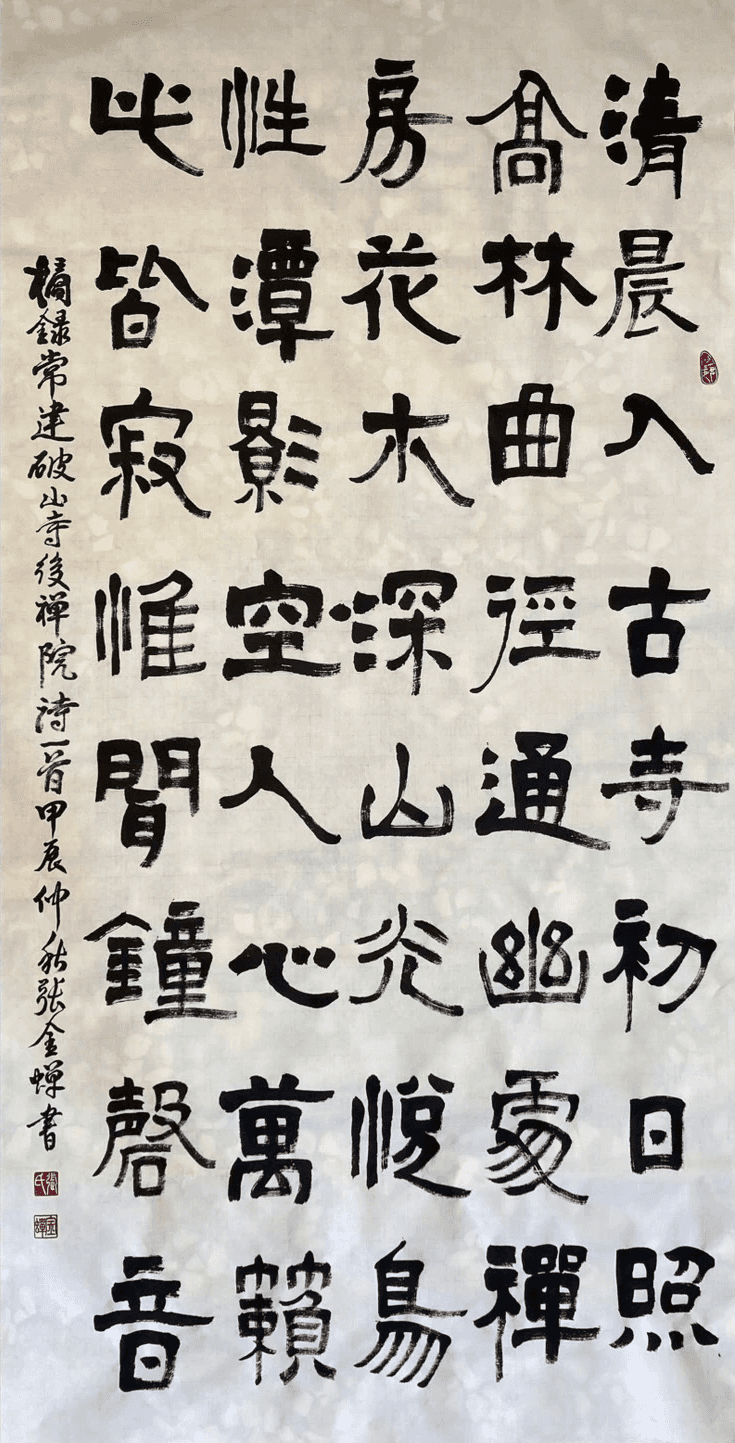 清晨入古寺初日照
高林曲徑通幽處禪
房花木深山光悅鳥
性潭影空人心萬籟
此皆寂惟聞鐘磬音
摘録常建破山寺後禅院詩一首甲辰仲秋張金蝉書
張氏
金蟬